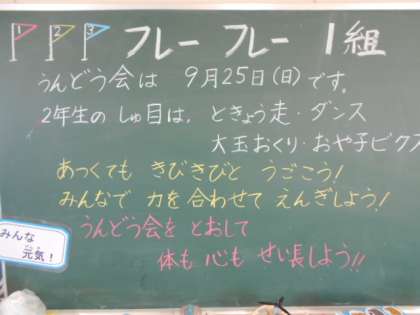 1 2 3 フレー フレー 1組
うんどう会は 9月25日(日)です。
2年生の しゅ目は、ときょう走・ダンス
大玉おくり・おや子ビクス
あつくても きびきびと うごこう!
みんなで 力を合わせて えんぎしよう!
うんどう会を とおして
体も 心も せい長しよう!!
みんな
元気!